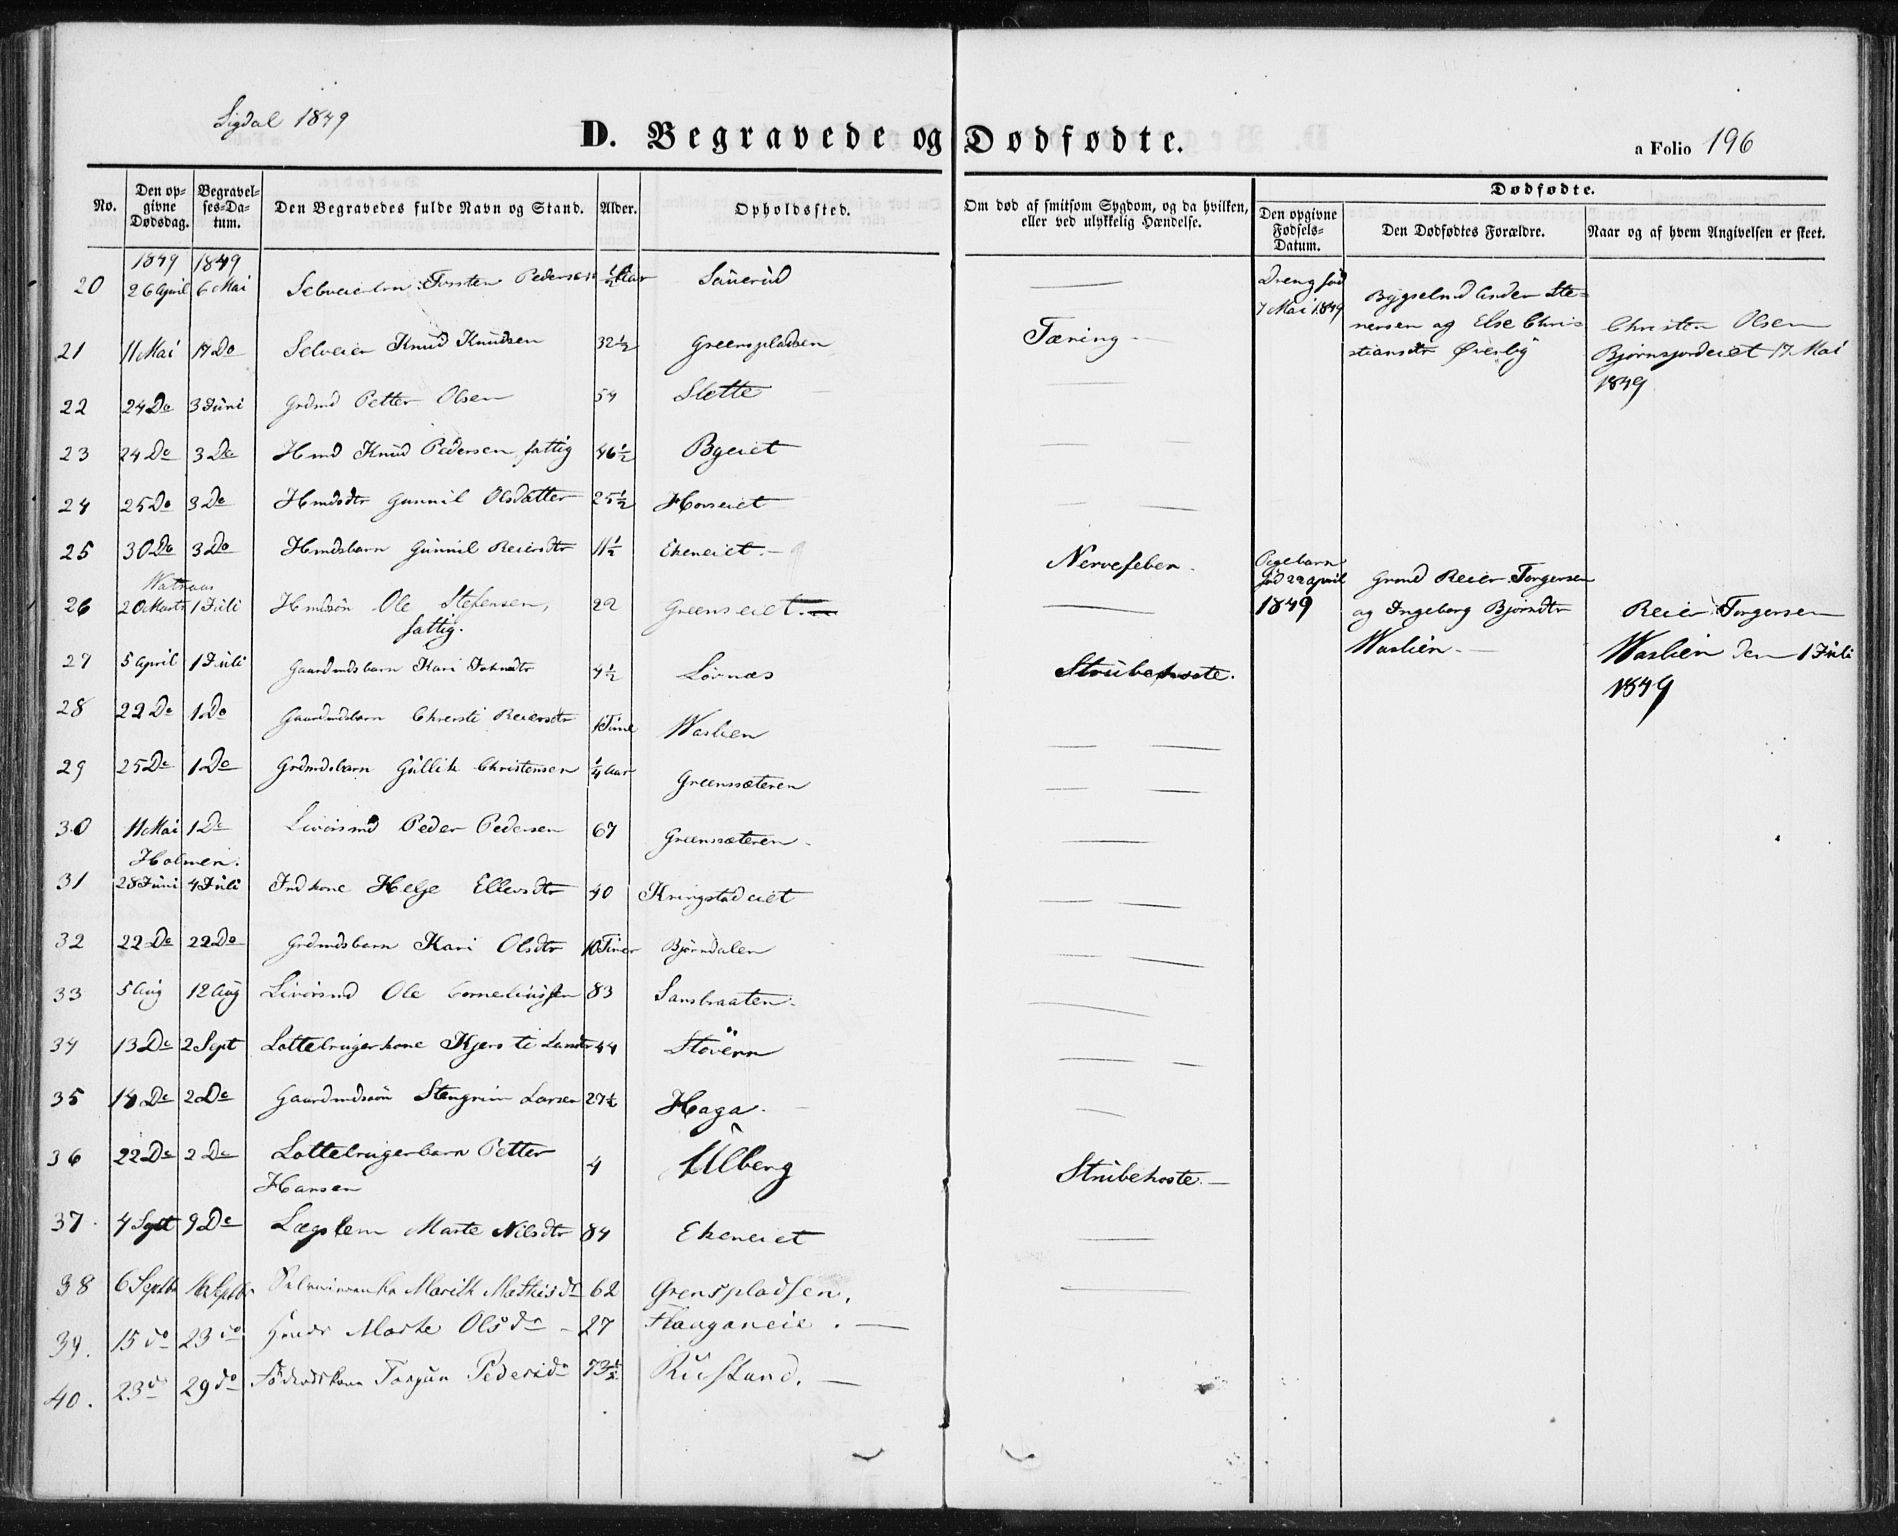 Sigdal 1849
D. Begravede og Dødfødte.
a Folio 196
No.
Den opgivne Dødsdag.
Begravelses-Datum.
Den Begravedes fulde Navn og Stand.
Alder.
Opholdssted.
Om død af smitsom Sygdom, og da hvilken, eller ved ulykkelig Hændelse.
Dødfødte.
Den opgivne Fødsels-Datum.
Den Dødfødtes Forældre.
Naar og af hvem Angivelsen er skeet.
1849 1849
20 26 April 6 Mai Selveierbrn Torsten Pedersen ½ Aar Sauerud
21 11 Mai 17 Do Selveier Knud Knudsen 32½ Greenspladsen Tæring
22 24 Do 3 Juni Grdmd Petter Olsen 54 Slette
23 24 Do 3 Do Hmd Knud Pedersen fattig 46½ Bgeiet
24 25 Do 3 Do Hmdsdtr Gunnil Olsdatter 25½ Hovseiet
25 30 Do 3 Do Hmdsbarn Gunnil Reiersdtr 11½ Ekeneiet Nervefeber
Watnaas
26 20 Marts 1 Juli Hmdsøn Ole Stefensen, 22 Greenseiet
fattig.
27 5 April 1 Juli Gaardmdsbarn Kari Johnsdtr 4½ Lövnæs Strubehoste.
28 22 Do 1 Do Gaardmdsbarn Chrersti Reiersdtr 1 Time Waslien
29 25 Do 1 Do Grdmdsbarn Gullik Christensen ¼ Aar Greenssæteren
30 11 Mai 1 Do Livörsmd Peder Pedersen 67 Greenssæteren
Holmen.
31 28 Juni 4 Juli Indkone Helge Ellevsdtr 40 Kringstadeiet
32 22 Do 22 Do Grdmdsbarn Kari Olsdtr 10 Timer Björndalen
33 5 Aug 12 Aug Livörsmd Ole Corneliussen 83 Sansbraaten
34 13 Do 2 Sept Lottebrugerkone Kjersti Larsdtr 44 Støvern
35 14 Do 2 Do Gaardmdssön Stengrim Larsen 27½ Haga
36 22 Do 2 Do Lottebrugerbarn Petter 4 Ulberg Strubehoste.
Hansen
37. 4 Sept 9 Do Lægslem Marte Nilsdtr 84 Ekeneiet
38 6 Septbr 16 Septbr Marith Mathisdr 62 Grenspladsen.
39. 15 do 23 do Marte Olsdr 27 Flauganeie.
40. 23 do 29 do Födrådskone Torgun Pedersdr 73½ Rustand.
Dreng fød
7 Mai 1849
Bygselmd Anders Ste-
nersen og Else Chris
stiansdtr Øverlig
Christen Olsen
Björnsjordeiet 17 Mai
1849
Pigebarn
fød 22 April
1849
Grmd Reier Torgersen
og Ingeborg Bjørnsdtr
Waslien
Reier Torgersen
Waslien den 1 Juli
1849